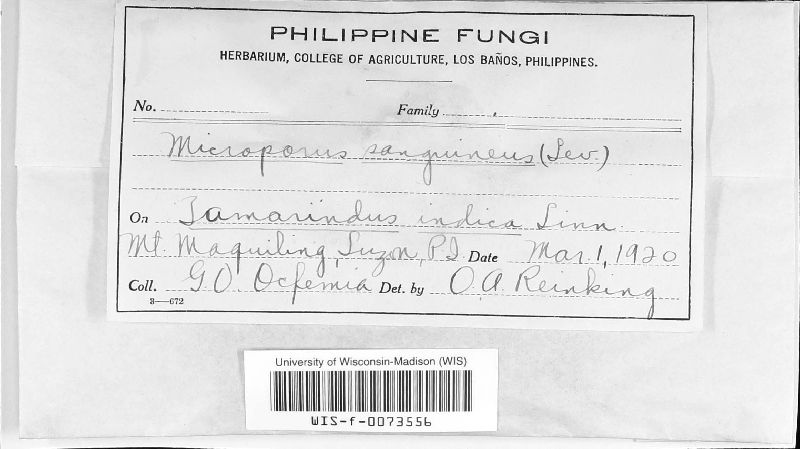 PHILIPPINE FUNGI
HERBARIUM, COLLEGE OF AGRICULTURE, LOS BAÑOS, PHILIPPINES.
No. Family
Microporus sanguineus (Lev.)
On Tamarindus indica Linn.
Mt. Maquiling, Luzon, P.I. Date Mar. 1, 1920
Coll. G.O. Ocfemia Det. by O.A. Reinking
3—672
University of Wisconsin-Madison (WIS)
WIS-f-0073556